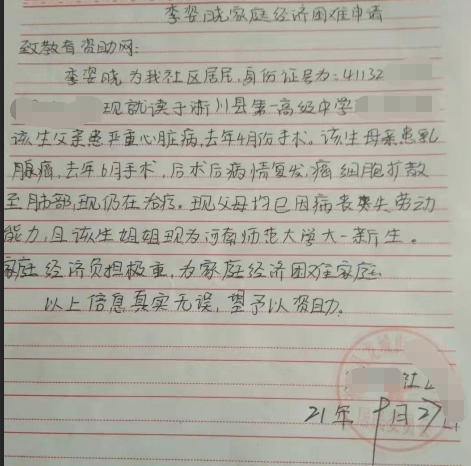 李姿晓家庭经济困难申请
致教育资助网:
李姿晓为我社区居民,身份证号为:41132
现就读于淅川县第一高级中学
该生父亲患严重心脏病,去年4月份手术。该生母亲患乳
腺癌,去年6月手术,后术后病情复发,癌细胞扩散
至肺部,现仍在治疗。现父母均已因病丧失劳动
能力,且该生姐姐现为河南师范大学大一新生。
家庭经济负担极重,为家庭经济困难家庭
以上信息真实无误,望予以资助。
社
21年9月27日